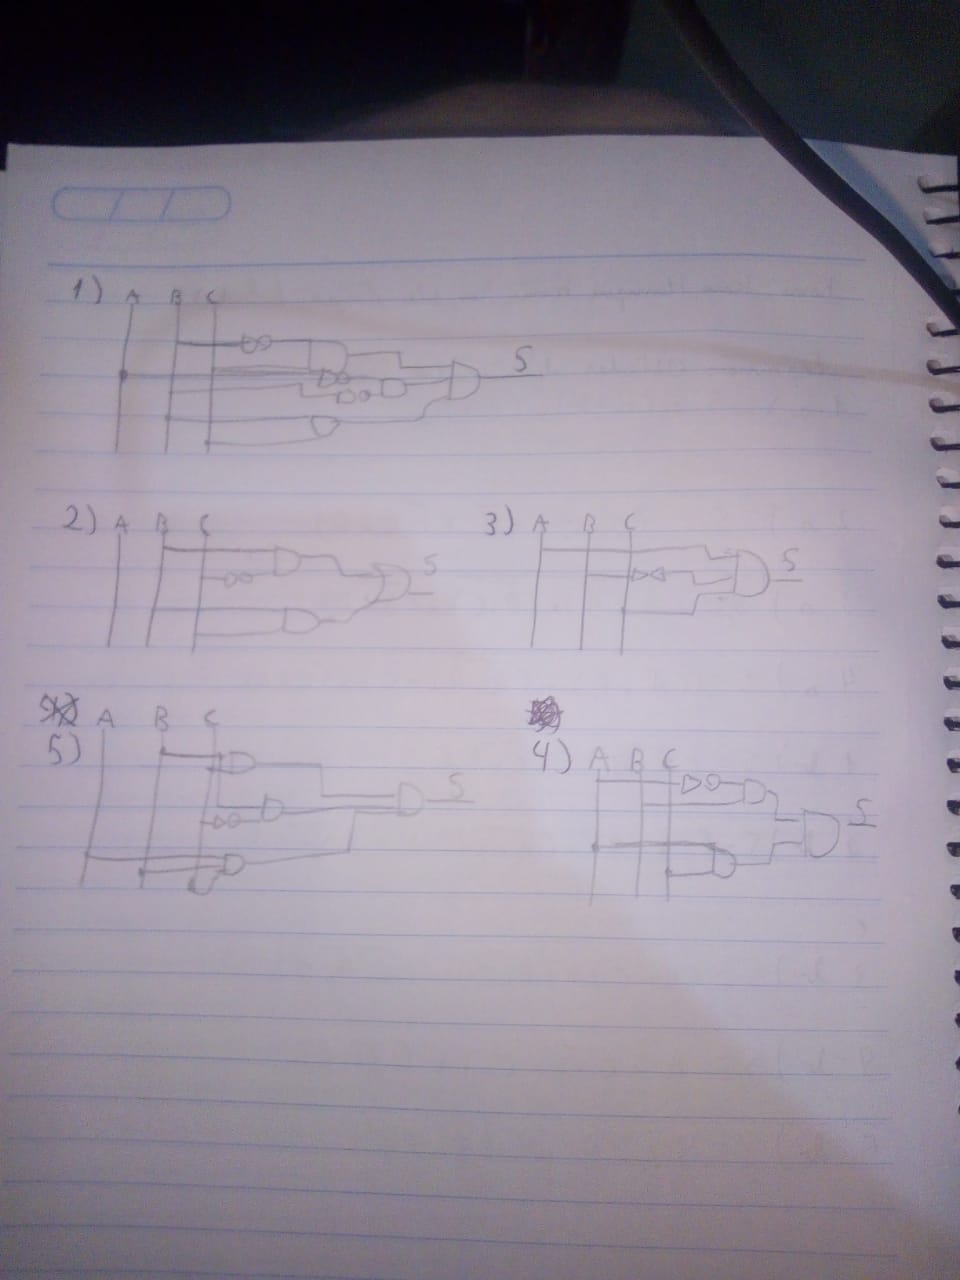 1) A B C
S
2) A B C
S
3) A B C
S
A B C
5)
S
4) A B C
S